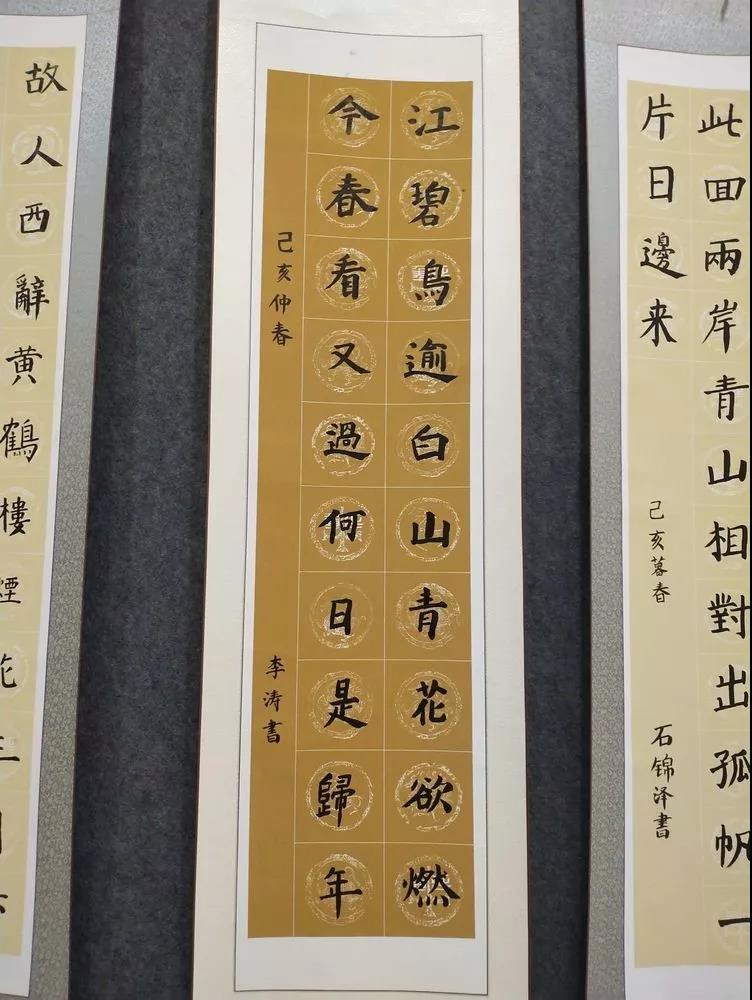 此囬兩岸青山相對出孤帆一
片日邊来
己亥暮春
石锦泽書
江碧鳥逾白山青花欲燃
今春看又過何日是歸年
己亥仲春
李涛書
故人西辭黄鶴樓